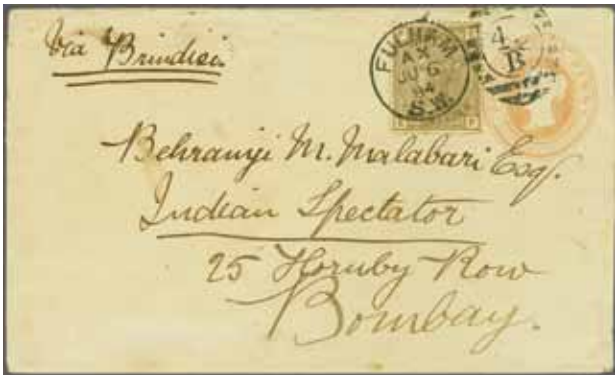 Via Brindisi
FULHAM
AX
JU 6
84
S.W.
4
B
Behramji M. Malabari Esq.
Indian Spectator
25 Hornby Row
Bombay.